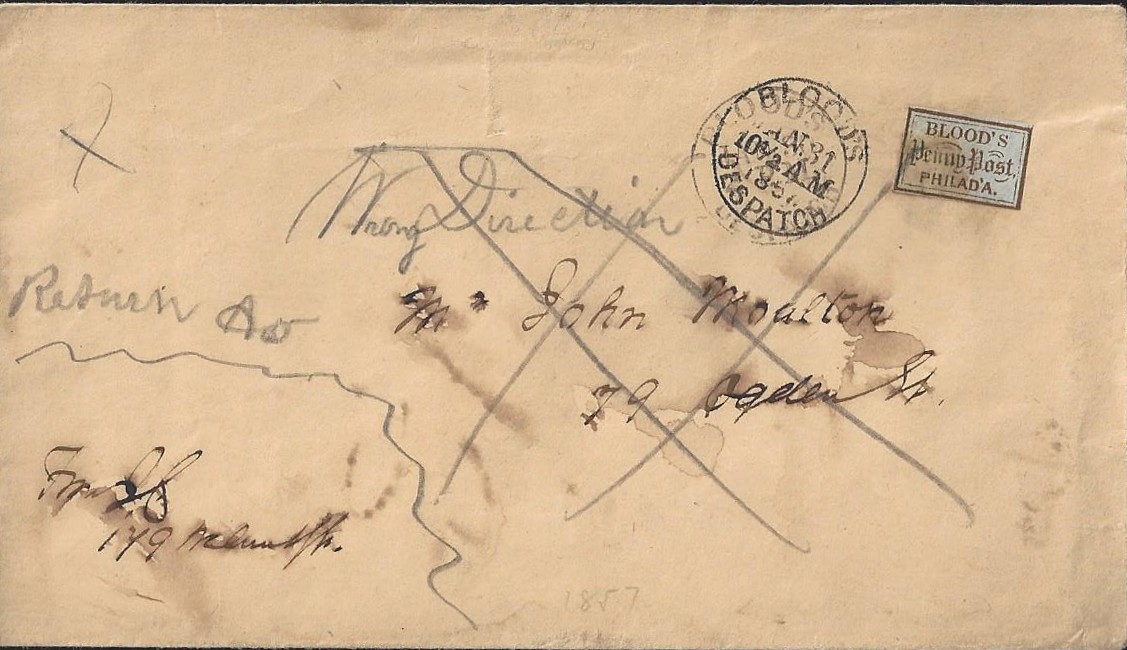 BLOOD'S
JAN 31
10½ A.M
185
DESPATCH
BLOOD'S
Penny Post.
PHILAD'A.
Wrong Direction
Return to
Mr John Moulton
79 Ogden St.
From
179 Walnut St.
1857